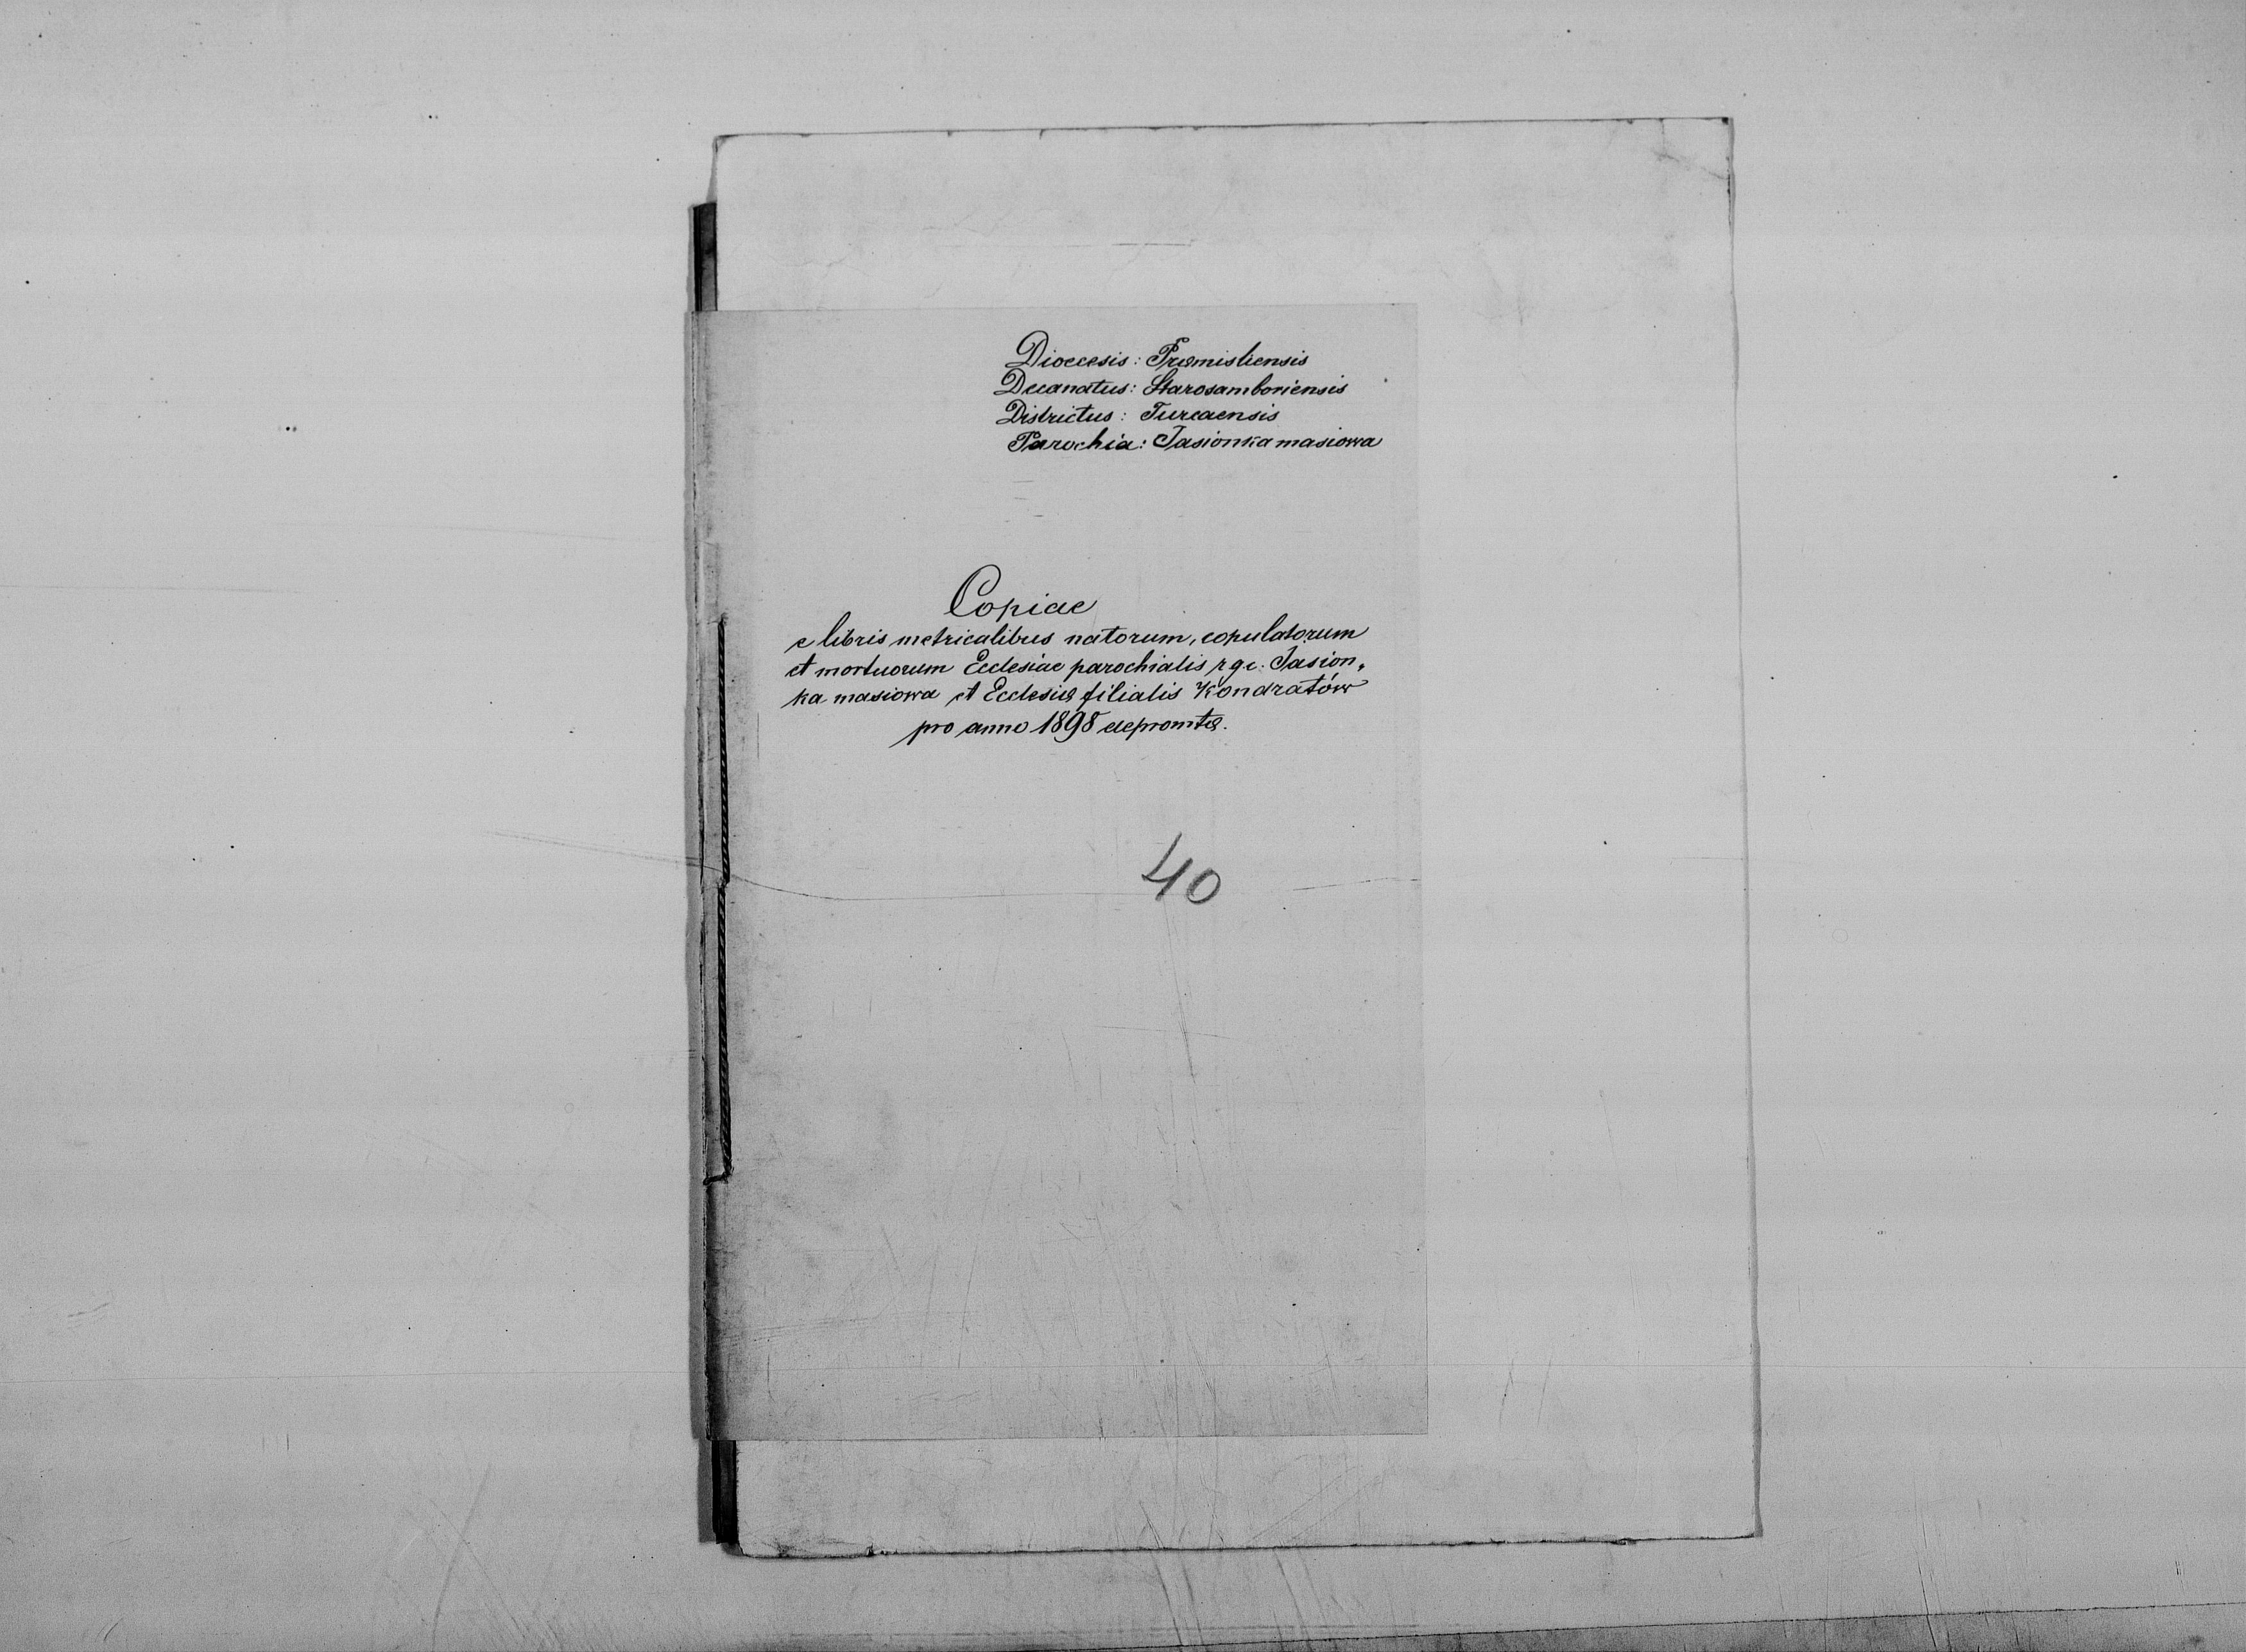 Dioecesis: Præmisliensis
Decanatus: Starosamboriensis
Districtus: Turcaensis
Parochia: Jasionka masiowa
Copiae
e libris metricalibus natorum, copulatorum
et mortuorum Ecclesiae parochialis r.g.c. Jasion„
ka masiowa et Ecclesiæ filialis Kondratów
pro anno 1898 depromtæ.
40